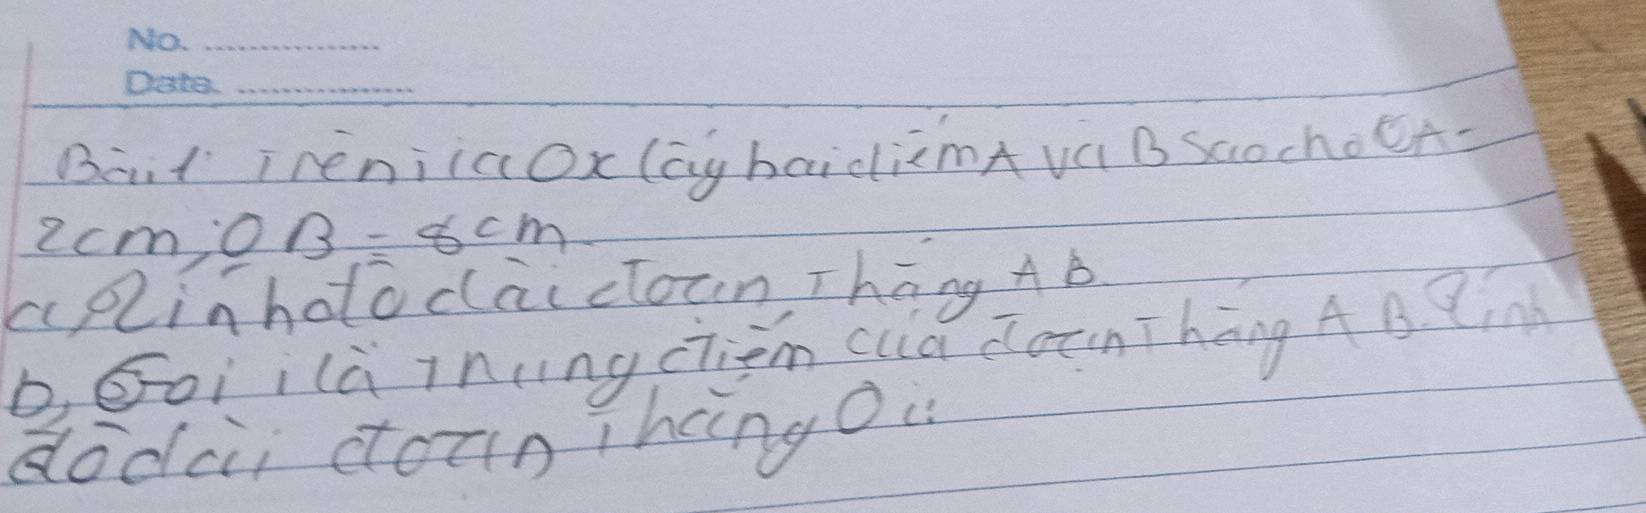 No.
Date
Bài 1: Trên tia Ox lấy hai điểm A và B sao cho OA =
2cm; OB = 8cm
a, Tính độ dài đoạn thẳng AB.
b, Gọi i là trung điểm của đoạn thẳng AB. Tính
độ dài đoạn thẳng Oi